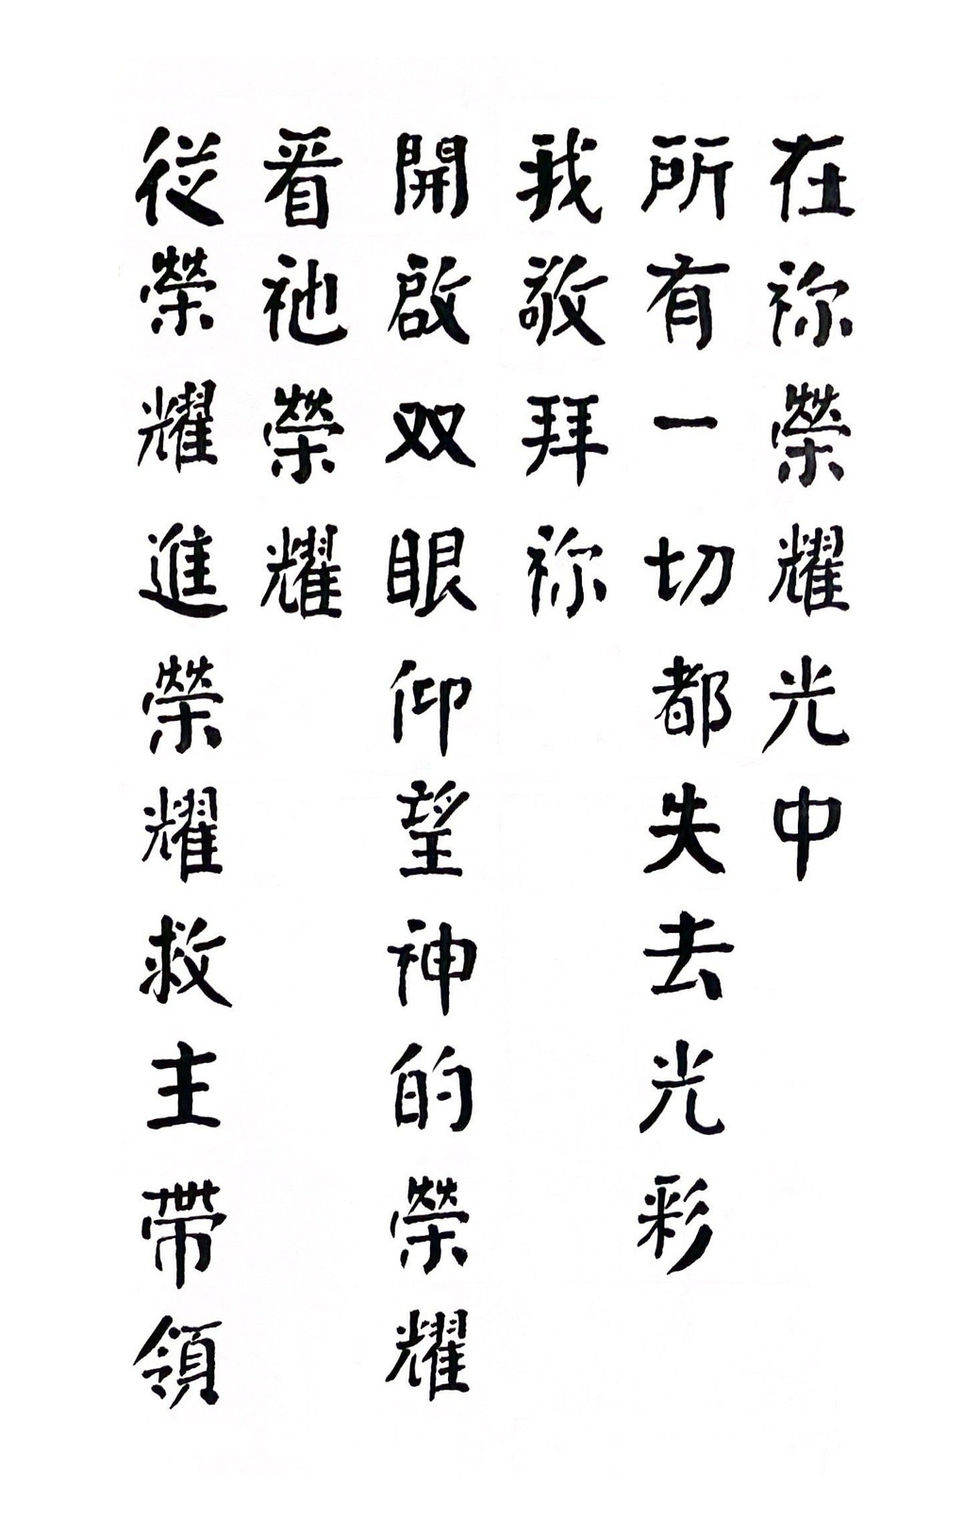 在祢榮耀光中
所有一切都失去光彩
我敬拜祢
開啟双眼仰望神的榮耀
看祂榮耀
從榮耀進榮耀救主帶領